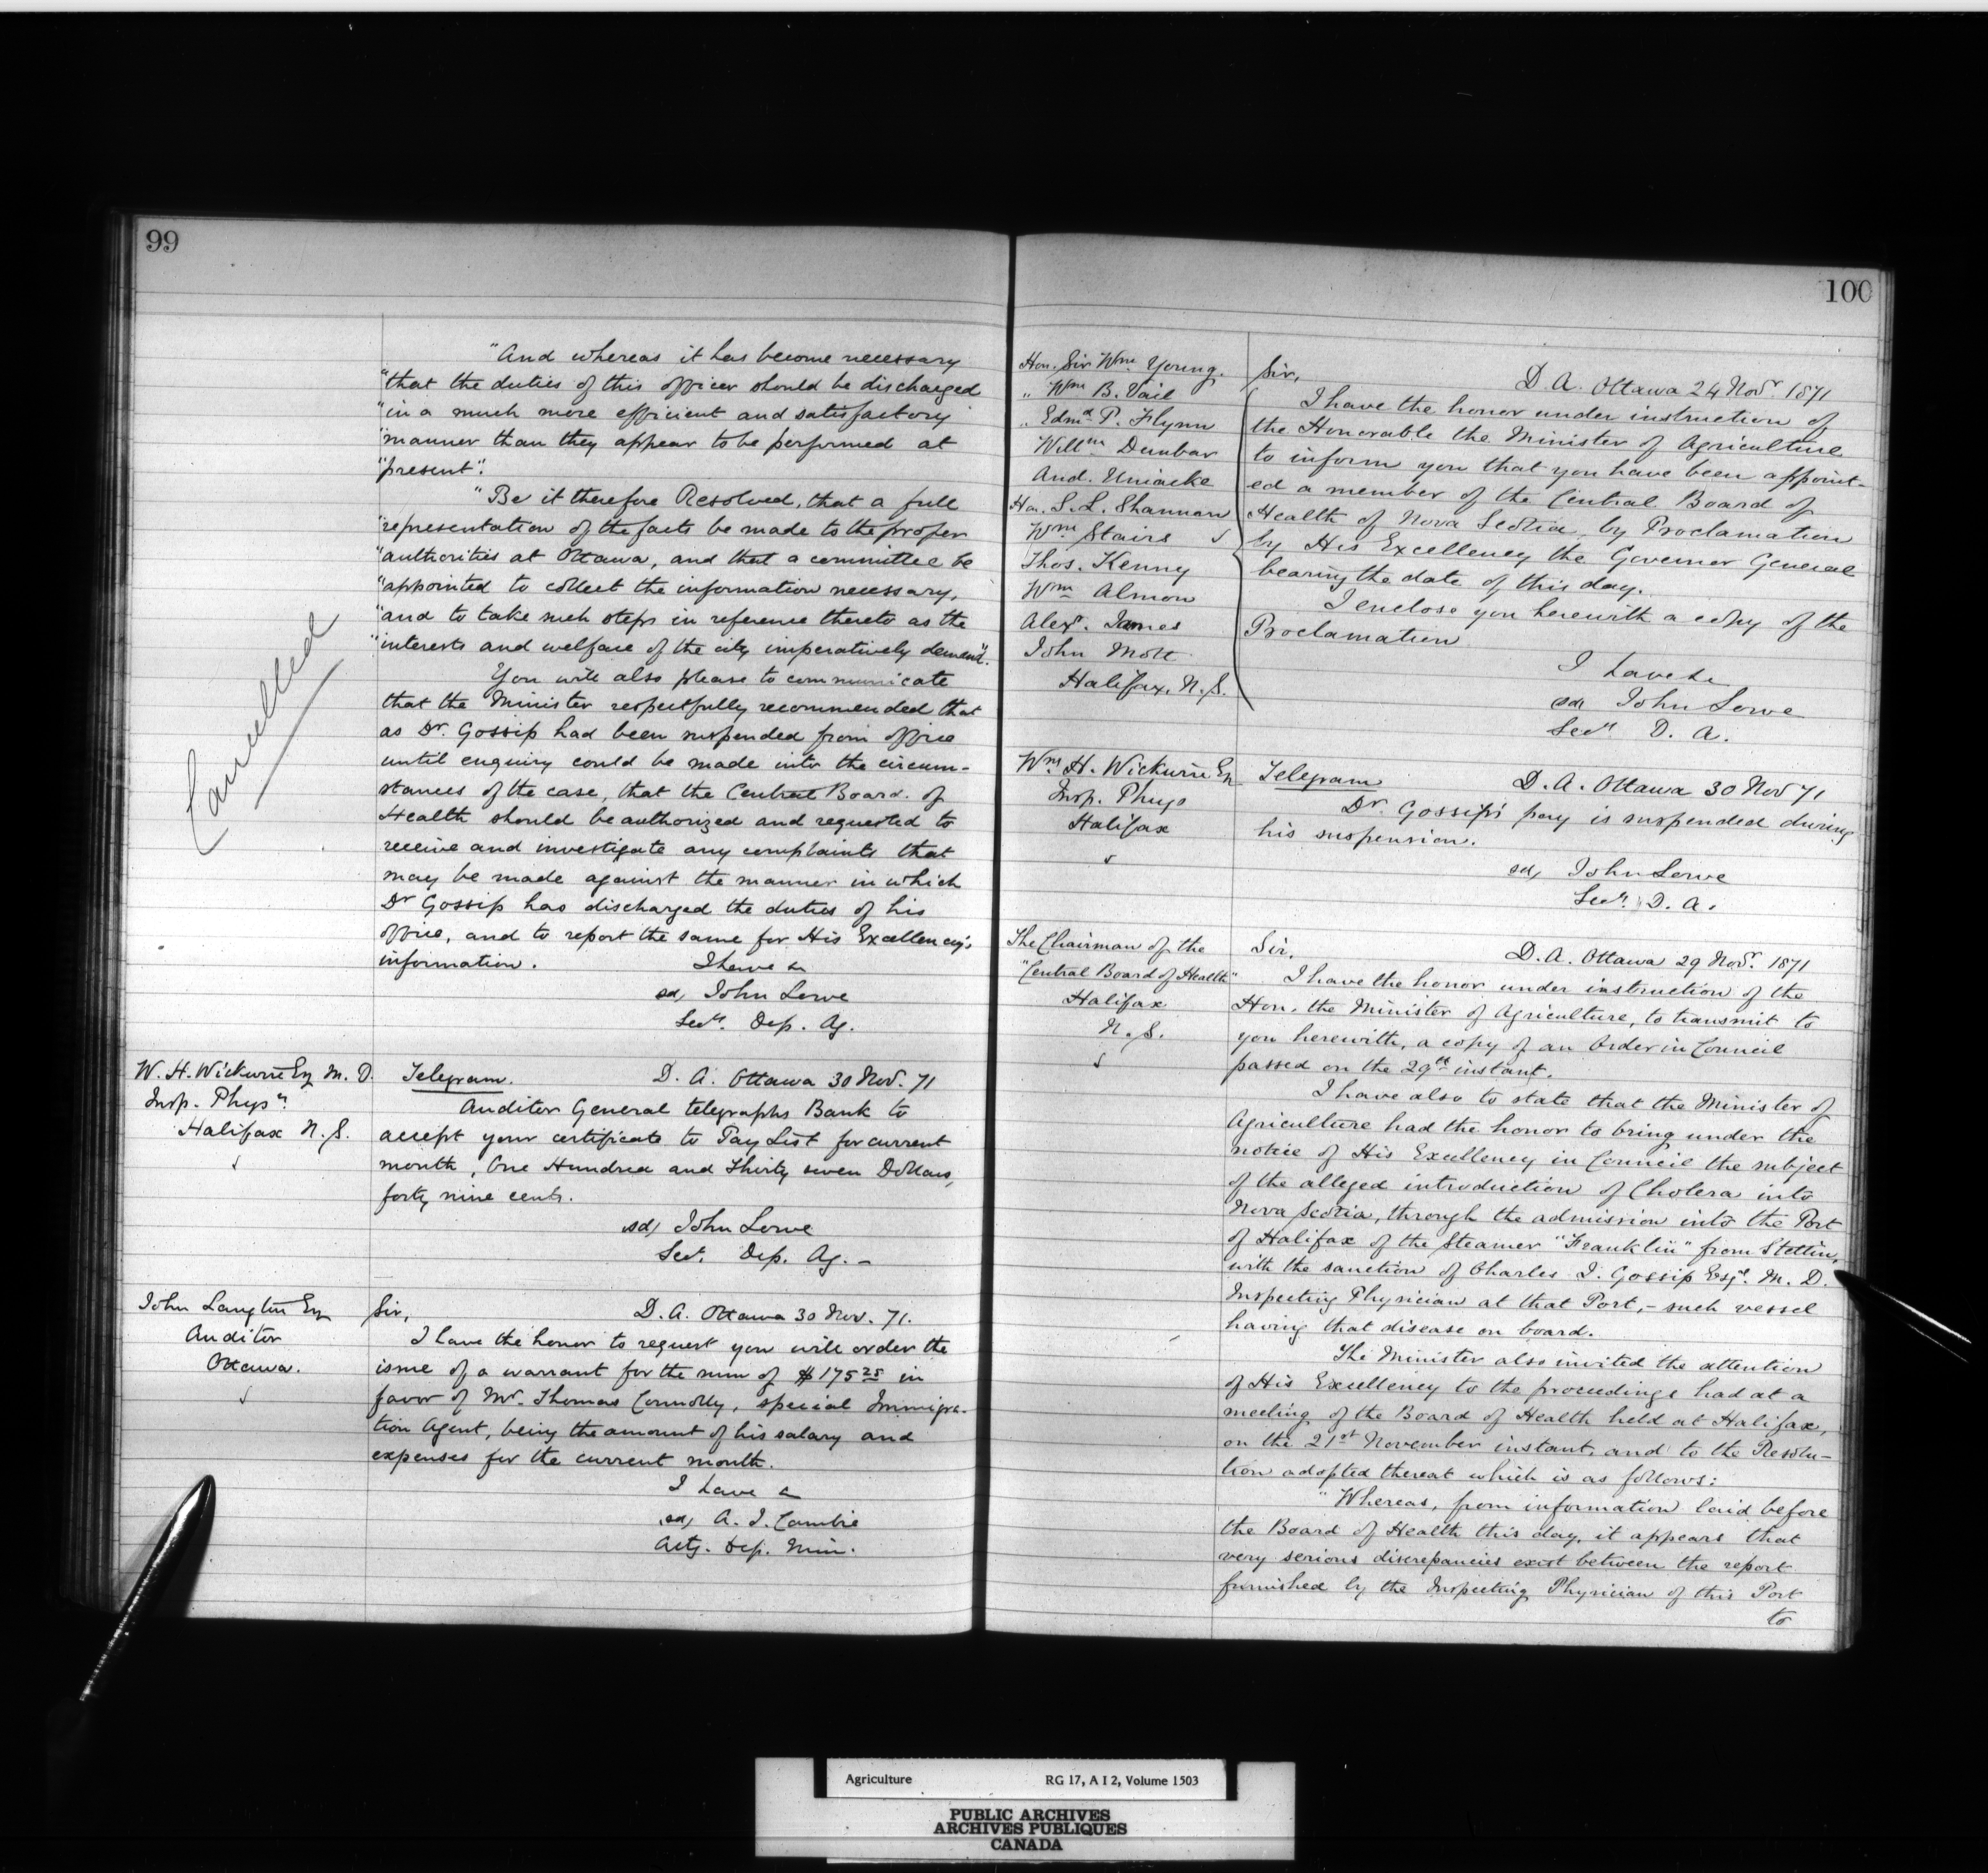 99
"And whereas it has become necessary
"that the duties of this officer should be discharged
"in a much more efficient and satisfactory
"manner than they appear to be performed at
"present".
"Be it therefore Resolved, that a full
"representation of the facts be made to the proper
"authorities at Ottawa, and that a committee be
"appointed to collect the information necessary,
"and to take such steps in reference thereto as the
"interests and welfare of the city imperatively demand".
You will also please to communicate
that the Minister respectfully recommended that
as Dr. Gossip had been suspended from office
until enquiry could be made into the circum-
stances of the case, that the Central Board of
Health should be authorized and requested to
receive and investigate any complaints that
may be made against the manner in which
Dr Gossip has discharged the duties of his
office, and to report the same for His Excellency's
information. I have &
sd, John Lowe
Secy. Dep. Ag.
Cancelled
W. H. Wickwire Esq M. D.
Insp. Physn.
Halifax N. S.
Telegram. D. A. Ottawa 30 Nov. 71
Auditor General telegraphs Bank to
accept your certificate to Pay List for current
month, One Hundred and Thirty seven Dollars,
forty nine cents.
sd, John Lowe
Secy. Dep. Ag. -
John Langton Esq
Auditor
Ottawa.
Sir, D. A. Ottawa 30 Nov. 71.
I have the honor to request you will order the
issue of a warrant for the sum of $175 25 in
favor of Mr. Thomas Connolly, special Immigra-
tion Agent, being the amount of his salary and
expenses for the current month.
I have &
sd, A. J. Cambie
Actg. Dep. Min.
100
Hon. Sir Wm Young.
" Wm B. Vail
" Edmd P. Flynn
Willm Dunbar
And. Uniacke
Hon. S. L. Shannon
Wm Stairs
Thos. Kenny
Wm Almon
Alexr. James
John Mott
Halifax, N. S.
Sir, D. A. Ottawa 24 Novr 1871
I have the honor under instruction of
the Honorable the Minister of Agriculture
to inform you that you have been appoint-
ed a member of the Central Board of
Health of Nova Scotia, by Proclamation
by His Excellency the Governor General
bearing the date of this day.
I enclose you herewith a copy of the
Proclamation
I have &c
sd, John Lowe
Secy D. A.
Wm H. Wickwire Esq
Insp. Phys
Halifax
Telegram D. A. Ottawa 30 Nov 71
Dr Gossip's pay is suspended during
his suspension.
sd, John Lowe
Secy. D. A.
The Chairman of the
"Central Board of Health"
Halifax
N. S.
Sir, D. A. Ottawa 29 Novr. 1871
I have the honor under instruction of the
Hon. the Minister of Agriculture, to transmit to
you herewith, a copy of an Order in Council
passed on the 29th instant.
I have also to state that the Minister of
Agriculture had the honor to bring under the
notice of His Excellency in Council the subject
of the alleged introduction of Cholera into
Nova Scotia, through the admission into the Port
of Halifax of the Steamer "Franklin" from Stettin,
with the sanction of Charles J. Gossip Esqr. M. D.
Inspecting Physician at that Port, - such vessel
having that disease on board.
The Minister also invited the attention
of His Excellency to the proceedings had at a
meeting of the Board of Health held at Halifax,
on the 21st November instant, and to the Resolu-
tion adopted thereat which is as follows:
"Whereas, from information laid before
the Board of Health this day, it appears that
very serious discrepancies exist between the report
furnished by the Inspecting Physician of this Port
to
Agriculture RG 17, A I 2, Volume 1503
PUBLIC ARCHIVES
ARCHIVES PUBLIQUES
CANADA